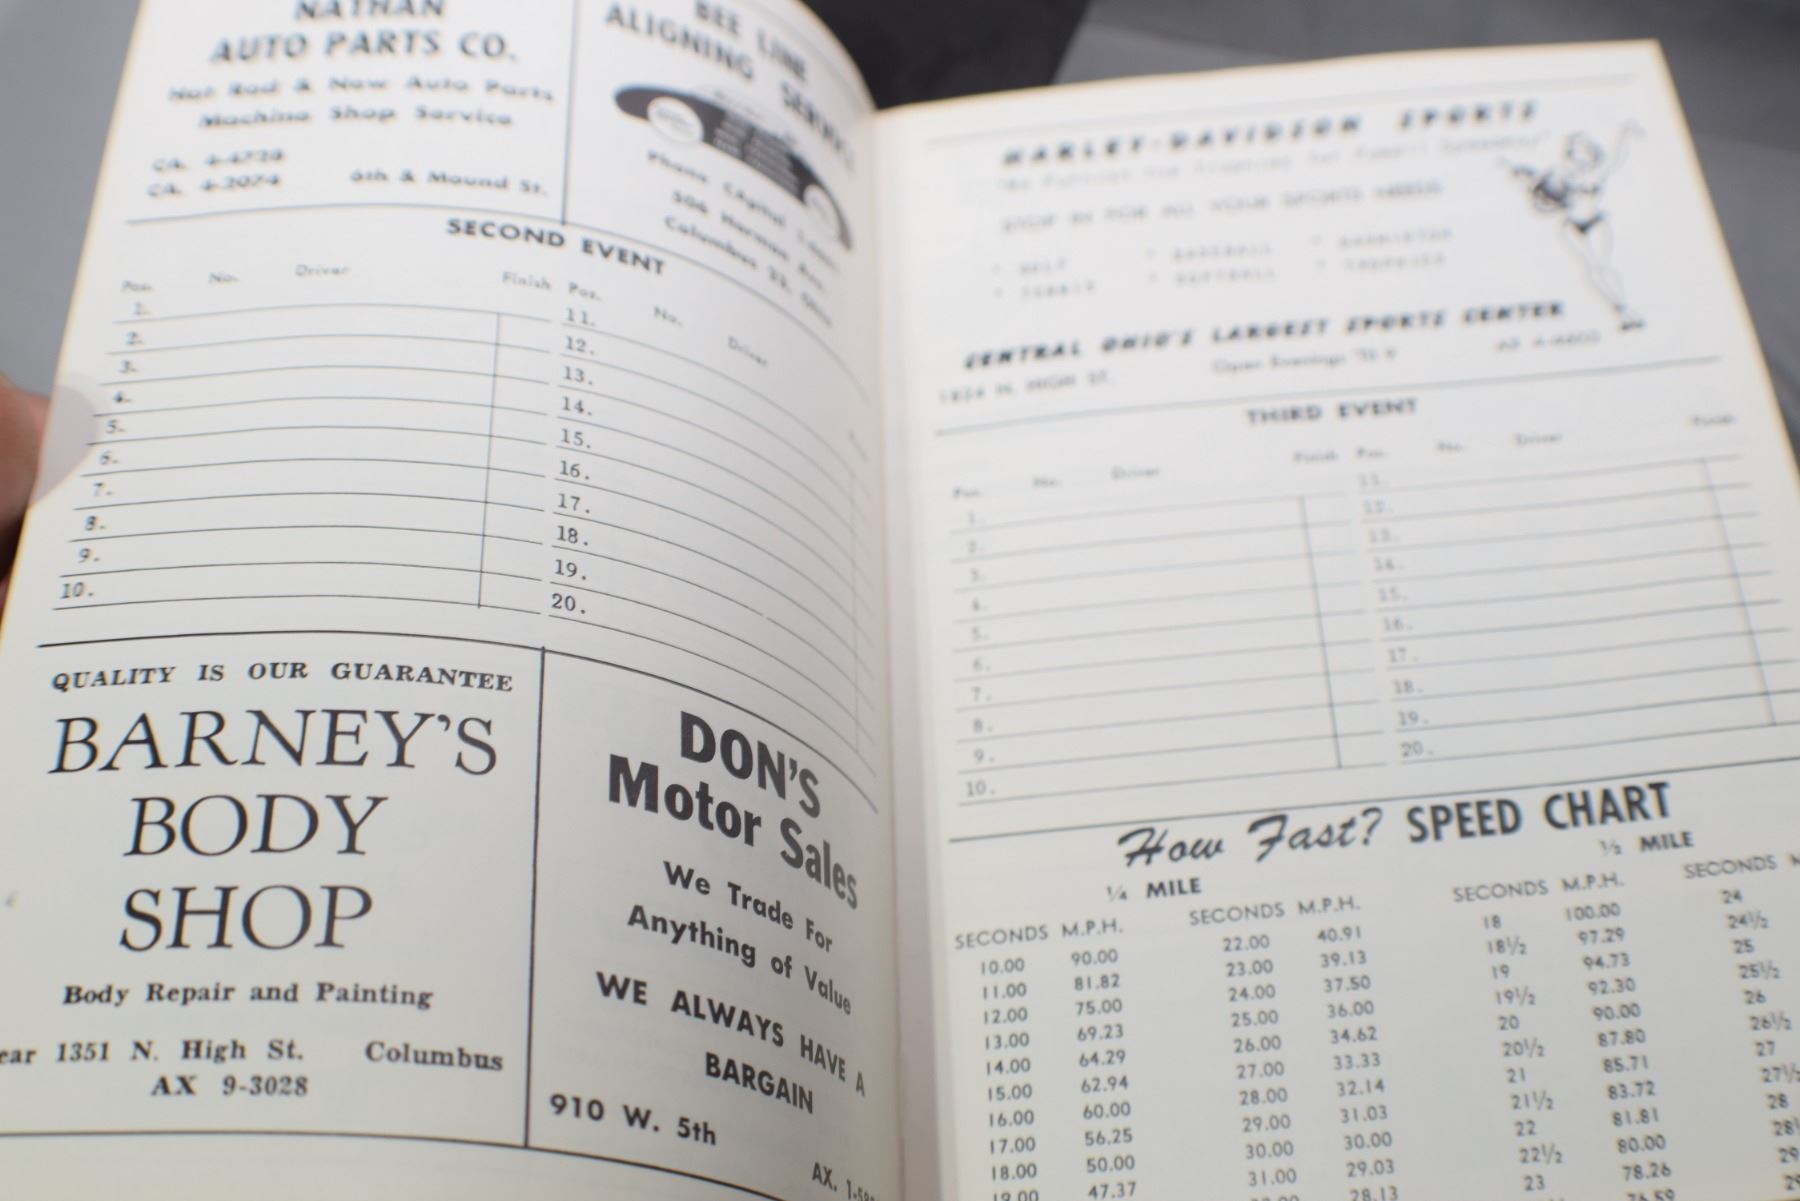 NATHAN
AUTO PARTS CO.
Hot Rod & New Auto Parts
Machine Shop Service
CA. 4-4728
CA. 4-2074 6th & Mound St.
BEE LINE
ALIGNING SERVICE
Phone CApitol
506 Harmon Ave.
Columbus 23, Ohio
SECOND EVENT
Pos. No. Driver Finish Pos. No. Driver
1. 11.
2. 12.
3. 13.
4. 14.
5. 15.
6. 16.
7. 17.
8. 18.
9. 19.
10. 20.
QUALITY IS OUR GUARANTEE
BARNEY'S
BODY
SHOP
Body Repair and Painting
ear 1351 N. High St. Columbus
AX 9-3028
DON'S
Motor Sales
We Trade For
Anything of Value
WE ALWAYS HAVE A
BARGAIN
910 W. 5th
AX. 1-58
HARLEY-DAVIDSON SPORTS
STOP IN FOR ALL YOUR SPORTS NEEDS
* GOLF * BASEBALL * BADMINTON
* TENNIS * SOFTBALL * TROPHIES
CENTRAL OHIO'S LARGEST SPORTS CENTER
N. HIGH ST. Open Evenings 'Til 9
THIRD EVENT
Pos. No. Driver Finish Pos. No. Driver Finish
1. 11.
2. 12.
3. 13.
4. 14.
5. 15.
6. 16.
7. 17.
8. 18.
9. 19.
10. 20.
How Fast? SPEED CHART
¼ MILE ½ MILE
SECONDS M.P.H. SECONDS M.P.H. SECONDS M.P.H. SECONDS M
10.00 90.00 22.00 40.91 18 100.00 24
11.00 81.82 23.00 39.13 18½ 97.29 24½
12.00 75.00 24.00 37.50 19 94.73 25
13.00 69.23 25.00 36.00 19½ 92.30 25½
14.00 64.29 26.00 34.62 20 90.00 26
15.00 62.94 27.00 33.33 20½ 87.80 26½
16.00 60.00 28.00 32.14 21 85.71 27
17.00 56.25 29.00 31.03 21½ 83.72 27½
18.00 50.00 30.00 30.00 22 81.81 28
19.00 47.37 31.00 29.03 22½ 80.00 28½
28.13 23 78.26 29
76.59